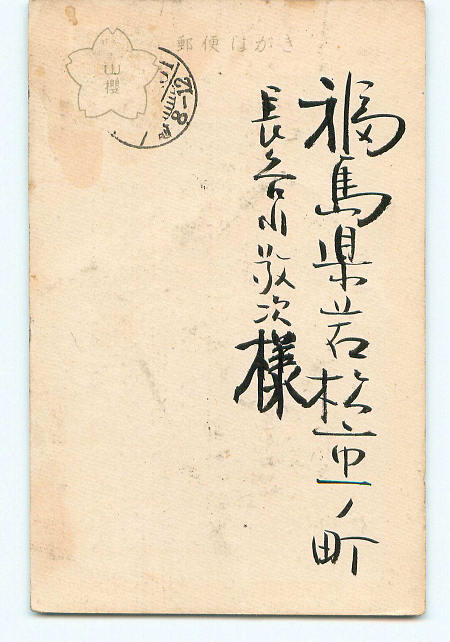 郵便はがき
山櫻
福島県若松市一ノ町
長谷川敬次様